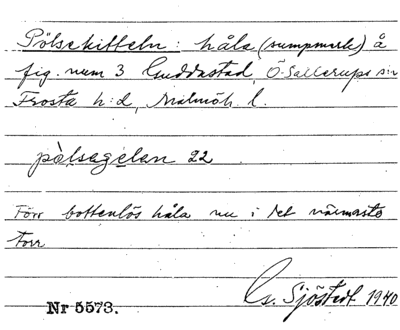 Pölsekitteln: håla (sumpmark) å
fig. num 3 Guddastad, Ö. Sallerups s:n
Frosta h:d, Malmöh. l.
pölsagelan 22
Förr bottenlös håla nu i det närmaste
torr
G. Sjöstedt 1940
Nr 5573.